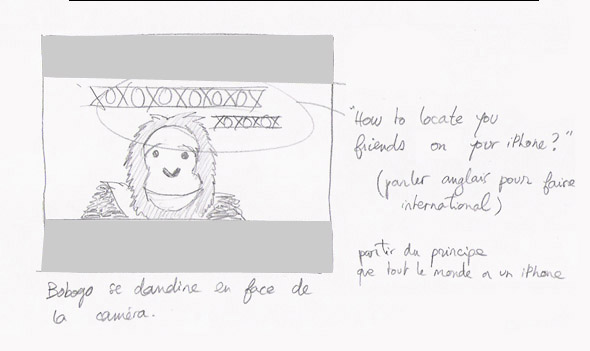 XOXOXOXOXOXOXOX
XOXOXOX
"How to locate you
friends on your iPhone?"
(parler anglais pour faire
international)
partir du principe
que tout le monde a un iPhone
Bobogo se dandine en face de
la caméra.